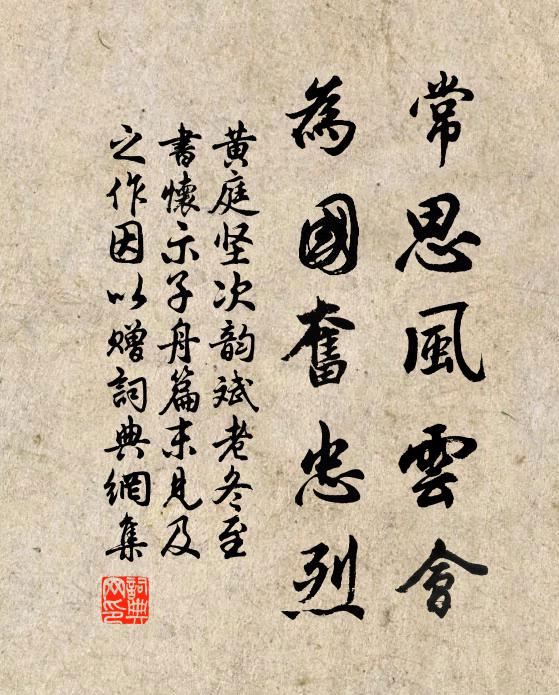 常思風雲會
為國奮忠烈
黄庭坚次韵斌老冬至
書懷示子舟篇末見及
之作因以贈詞典網集
詞典
网印